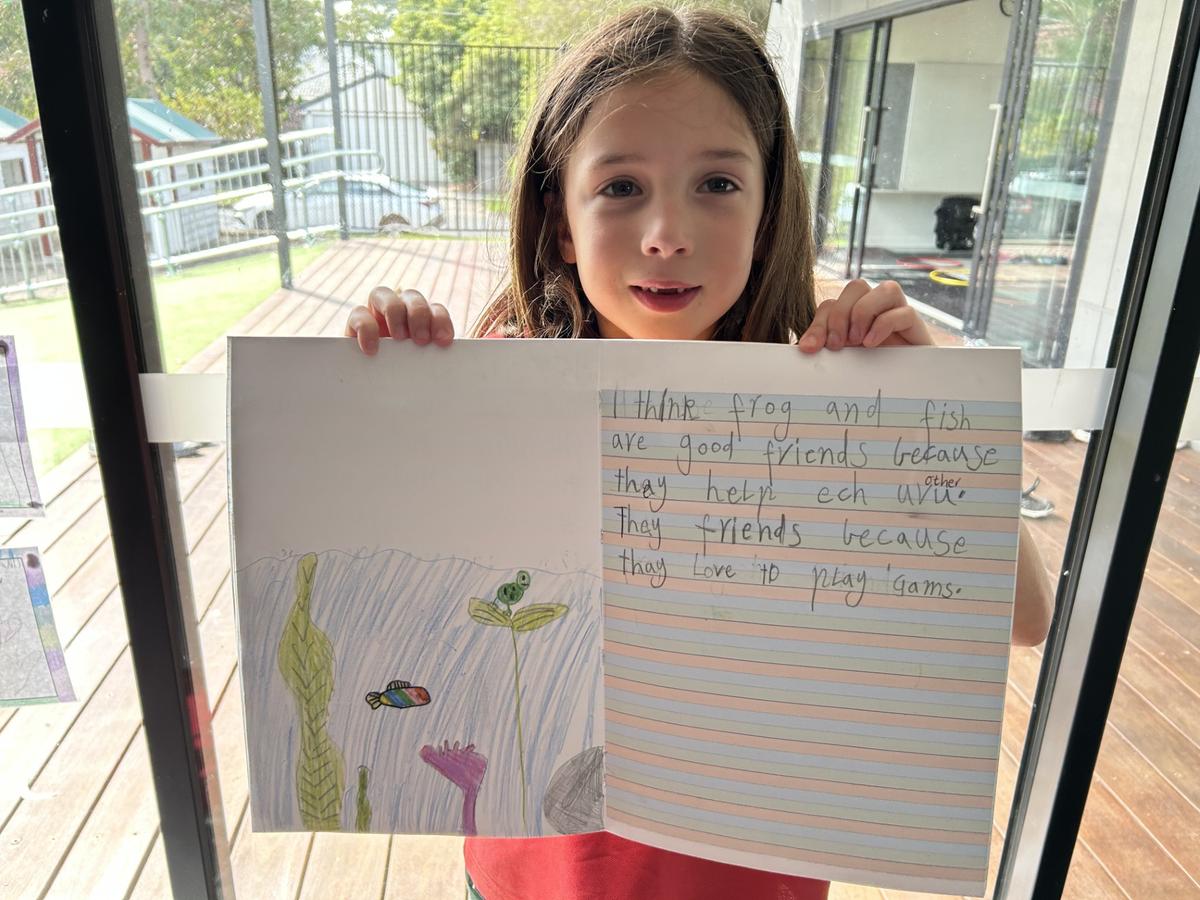 I think frog and fish
are good friends because
thay help ech uvu. other
They friends because
thay Love to play gams.